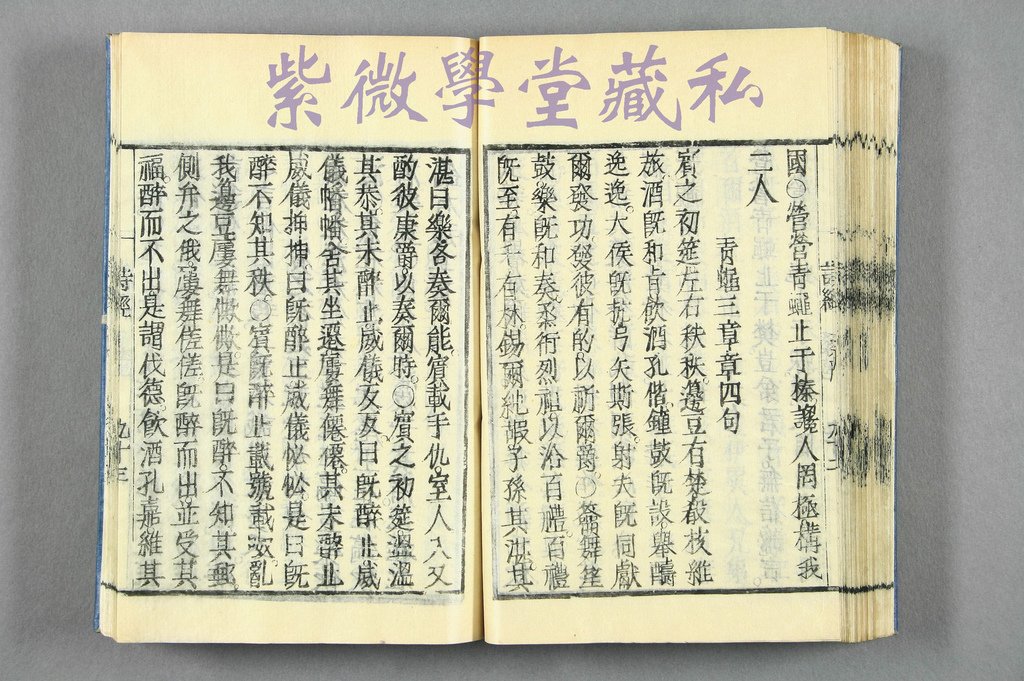 紫微學堂藏私
詩經
國〇營營青蠅止于榛讒人罔極構我
二人
靑蠅三章章四句
賓之初筵左右秩秩。籩豆有楚殽核維
旅酒旣和旨飲酒孔偕鐘鼓旣設舉醻
逸逸。大侯旣抗弓矢斯張。射夫旣同獻
爾發功發彼有的以祈爾爵〇籥舞笙
鼓樂旣和奏烝衎烈祖。以洽百禮百禮
旣至有壬有林錫爾純嘏子孫其湛。其
湛曰樂各奏爾能。賓載手仇。室人入又
酌彼康爵以奏爾時〇賓之初筵溫溫
其恭。其未醉止威儀反反曰旣醉止威
儀幡幡舍其坐遷屢舞僊僊。其未醉止
威儀抑抑曰旣醉止威儀怭怭是曰旣
醉不知其秩〇賓旣醉止載號載呶。亂
我籩豆屢舞僛僛。是曰旣醉。不知其郵
側弁之俄屢舞傞傞。旣醉而出並受其
福醉而不出是謂伐德。飲酒孔嘉維其
詩經
九十三